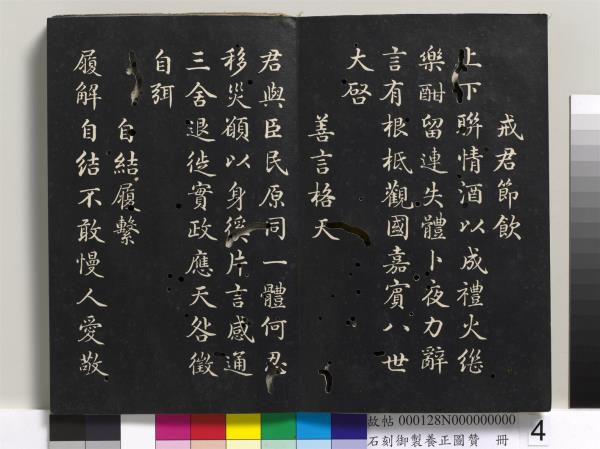 戒君節飲
上下聨情酒以成禮火繼
樂酣留連失體卜夜力辭
言有根柢觀國嘉賓八世
大啓
善言格天
君與臣民原同一體何忍
移災願以身片言感通
三舍退徙實政應天咎徵
自弭
自結履繫
履解自結不敢慢人愛敬
故帖 000128N000000000
石刻御製養正圖贊 冊
4